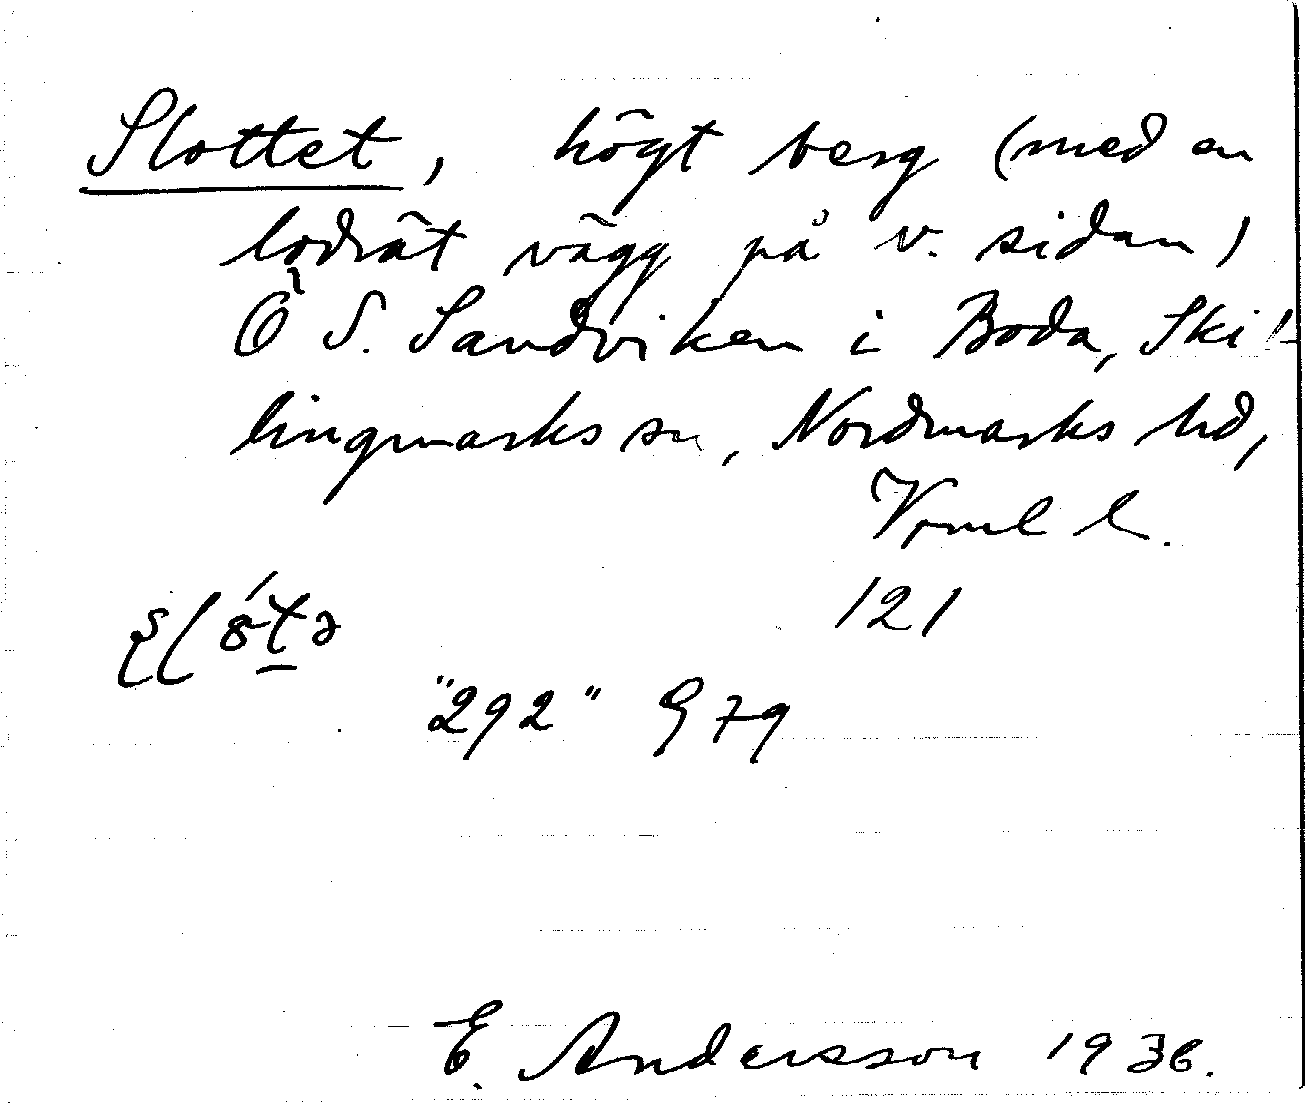 Slottet, högt berg (med en
lodrät vägg på v. sidan)
Ö S. Sandviken i Boda, Skil-
lingmarks sn, Nordmarks hd,
Vrml l.
121
"292" G 79
E. Andersson 1936.